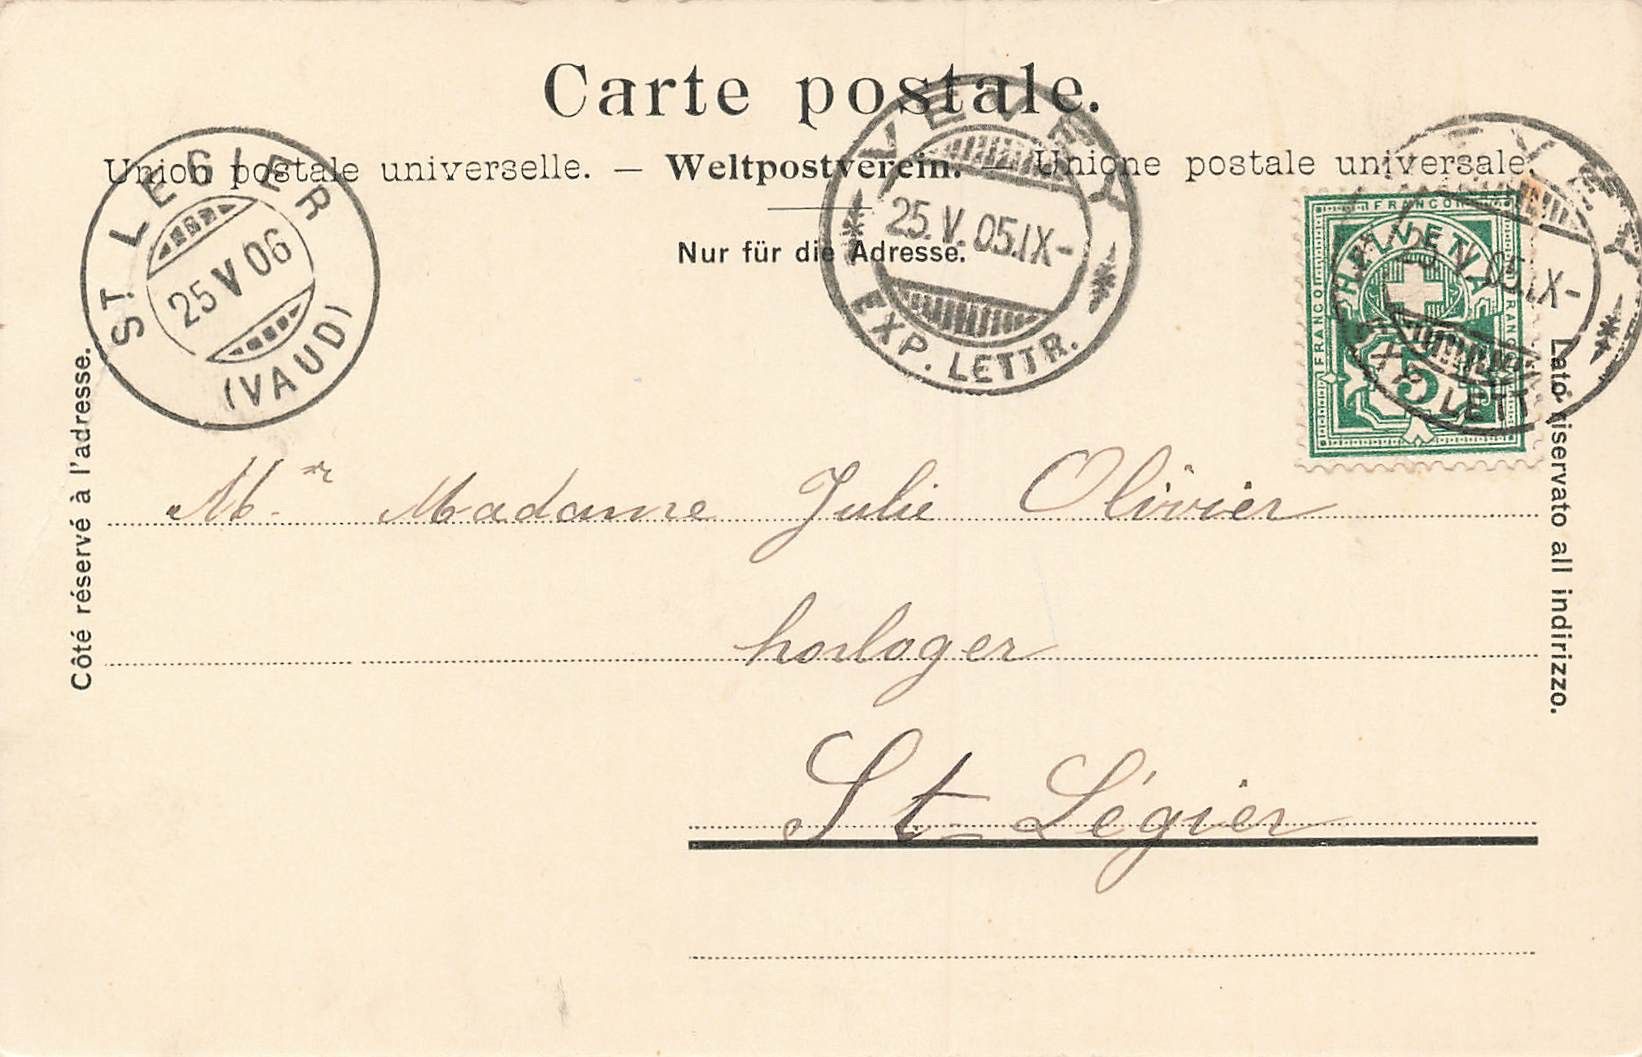 Carte postale.
Union postale universelle. — Weltpostverein. — Unione postale universale.
Nur für die Adresse.
ST LEGIER
25 V 06
(VAUD)
VEVEY
25.V.05.IX-
EXP. LETTR.
VEVEY
25.V.05.IX-
EXP. LETTR.
FRANCO
FRANCO
FRANCO
HELVETIA
5
Côté réservé à l'adresse.
Lato riservato all indirizzo.
Mr. Madame Julie Olivier
horloger
St-Légier